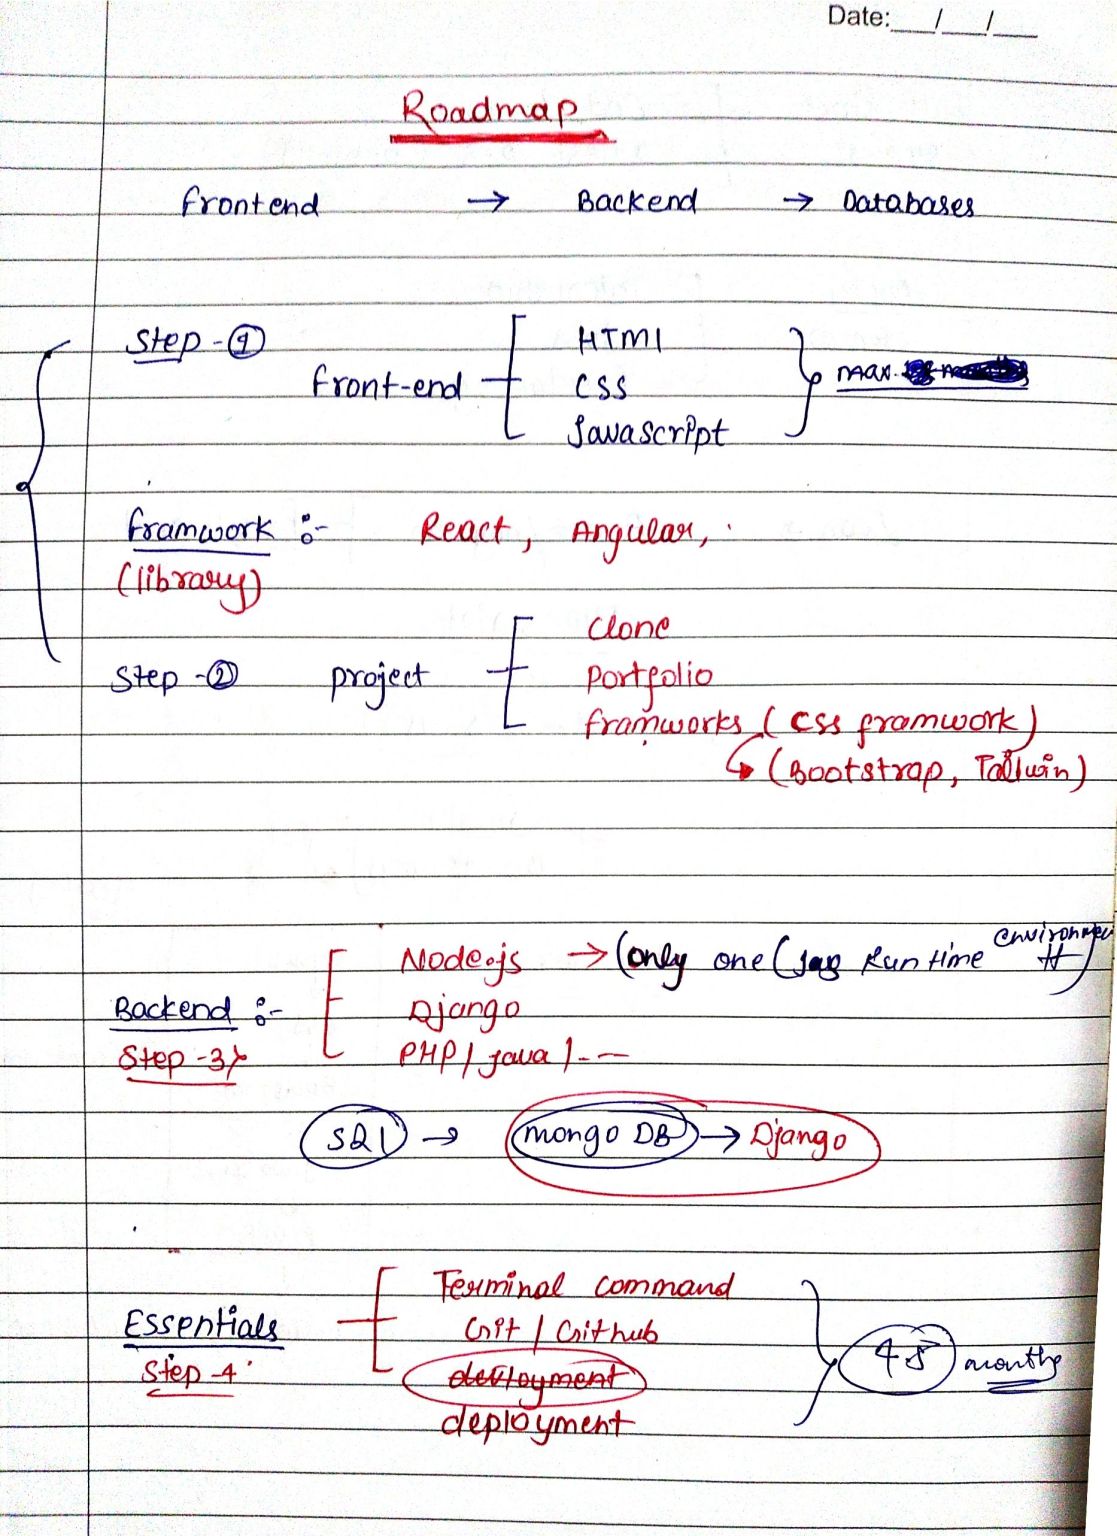 Date:___/___/___
Roadmap
frontend → Backend → Databases
Step-① 
HTMl
front-end CSS max.
Javascript
framwork :- React, Angular,
(library)
clone
Step-② project portfolio
framworks (css framwork)
(Bootstrap, Tailwin)
Node.js → (only one (Runtime environment)
Backend :- Django
Step-3 PHP/java/--
SQl → mongo DB → Django
Terminal command
Essentials Git/Github
Step-4 deployment
deployment
45 months